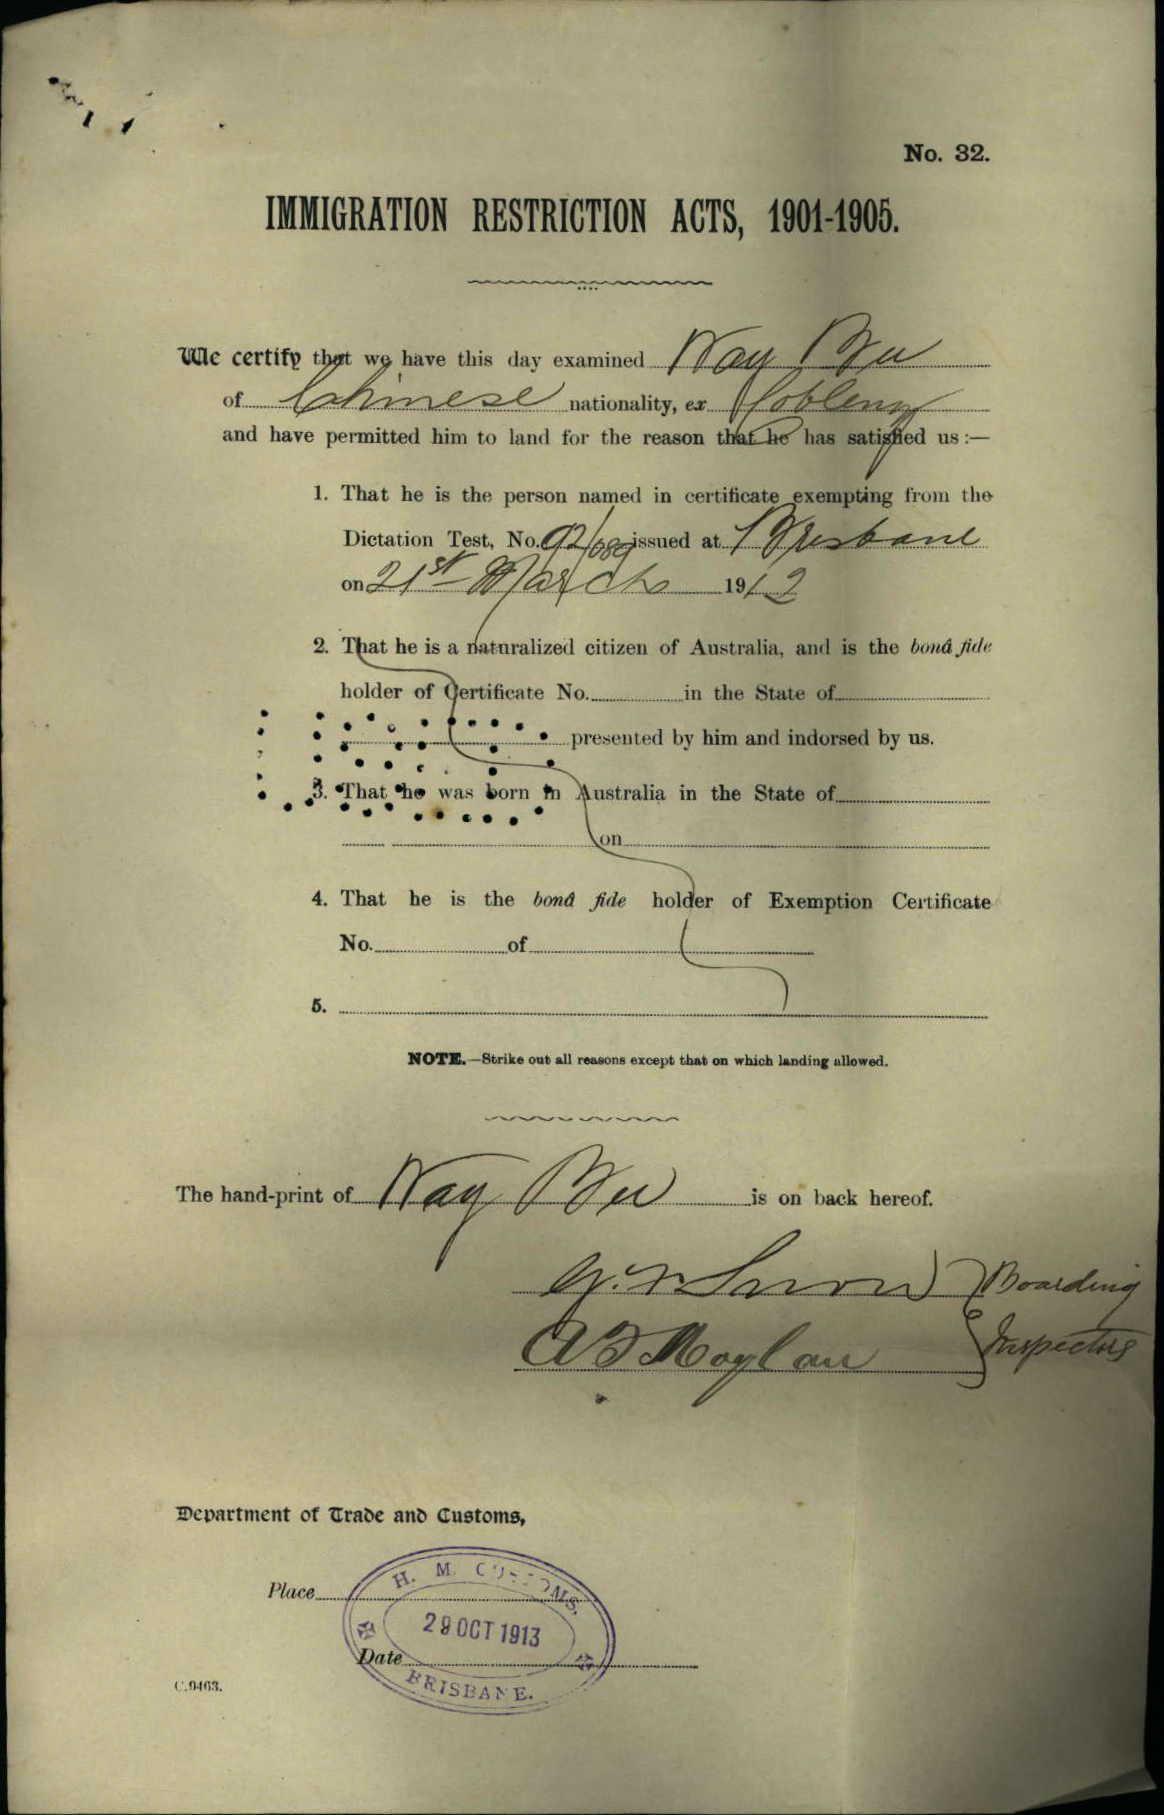 No. 32.
IMMIGRATION RESTRICTION ACTS, 1901-1905.
We certify that we have this day examined Way Bu
of Chinese nationality, ex Coblenz
and have permitted him to land for the reason that he has satisfied us :—
1. That he is the person named in certificate exempting from the
Dictation Test, No. 92/089 issued at Brisbane
on 21st March 1912
2. That he is a naturalized citizen of Australia, and is the bonâ fide
holder of Certificate No. in the State of
presented by him and indorsed by us.
3. That he was born in Australia in the State of
on
4. That he is the bonâ fide holder of Exemption Certificate
No. of
5.
NOTE.—Strike out all reasons except that on which landing allowed.
The hand-print of Way Bu is on back hereof.
Snow Boarding
A F Moylan Inspectors
Department of Trade and Customs,
H. M. CUSTOMS.
Place
29 OCT 1913
Date
BRISBANE.
C.9463.